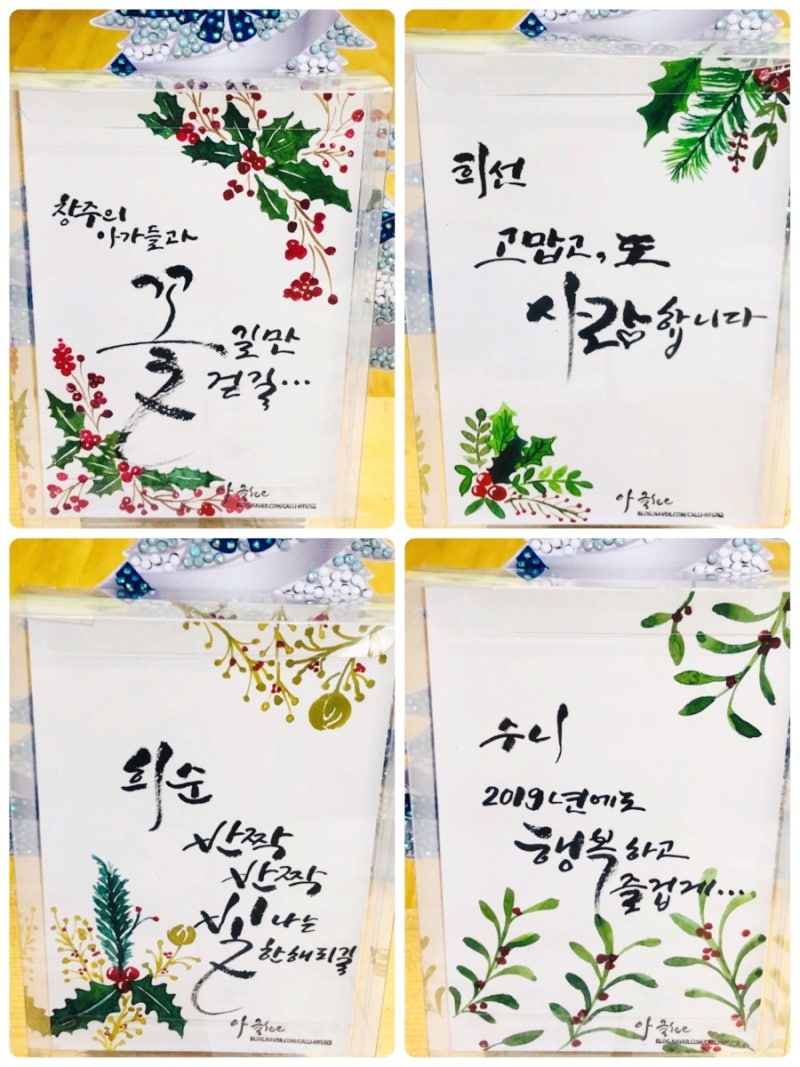 창주의
아가들과
꽃
길만
걷길...
아 글see
BLOG.NAVER.COM/CALLI-HYUN32
희선
고맙고, 또
사랑합니다
아 글see
BLOG.NAVER.COM/CALLI-HYUN32
희순
반짝
반짝
빛나는
한해되길
아 글see
BLOG.NAVER.COM/CALLI-HYUN32
수니
2019년에도
행복하고
즐겁게...
아 글see
BLOG.NAVER.COM/CALLI-HYUN32